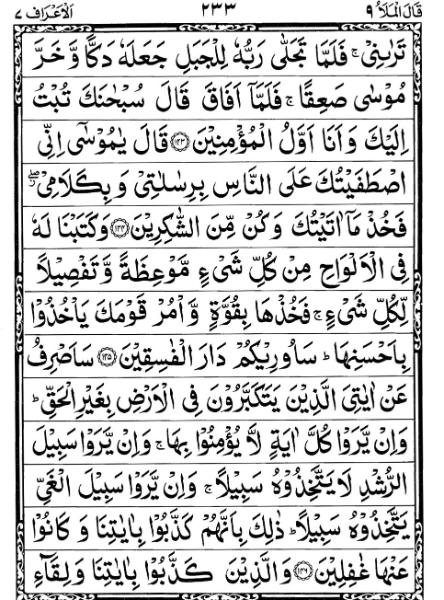 قَالَ الْمَلَاُ ٩ ٢٣٣ اَلْاَعْرَاف ٧
تَرٰىنِیْ ۚ فَلَمَّا تَجَلّٰی رَبُّهٗ لِلْجَبَلِ جَعَلَهٗ دَكًّا وَّ خَرَّ
مُوْسٰی صَعِقًا ۚ فَلَمَّاۤ اَفَاقَ قَالَ سُبْحٰنَكَ تُبْتُ
اِلَیْكَ وَ اَنَا اَوَّلُ الْمُؤْمِنِیْنَ ﴿۱۴۳﴾ قَالَ یٰمُوْسٰۤی اِنِّی
اصْطَفَیْتُكَ عَلَی النَّاسِ بِرِسٰلٰتِیْ وَ بِكَلَامِیْ ۖ
فَخُذْ مَاۤ اٰتَیْتُكَ وَ كُنْ مِّنَ الشّٰكِرِیْنَ ﴿۱۴۴﴾ وَ كَتَبْنَا لَهٗ
فِی الْاَلْوَاحِ مِنْ كُلِّ شَیْءٍ مَّوْعِظَةً وَّ تَفْصِیْلًا
لِّكُلِّ شَیْءٍ ۚ فَخُذْهَا بِقُوَّةٍ وَّ اْمُرْ قَوْمَكَ یَاْخُذُوْا
بِاَحْسَنِهَا ؕ سَاُورِیْكُمْ دَارَ الْفٰسِقِیْنَ ﴿۱۴۵﴾ سَاَصْرِفُ
عَنْ اٰیٰتِیَ الَّذِیْنَ یَتَكَبَّرُوْنَ فِی الْاَرْضِ بِغَیْرِ الْحَقِّ ؕ
وَ اِنْ یَّرَوْا كُلَّ اٰیَةٍ لَّا یُؤْمِنُوْا بِهَا ۚ وَ اِنْ یَّرَوْا سَبِیْلَ
الرُّشْدِ لَا یَتَّخِذُوْهُ سَبِیْلًا ۚ وَ اِنْ یَّرَوْا سَبِیْلَ الْغَیِّ
یَتَّخِذُوْهُ سَبِیْلًا ؕ ذٰلِكَ بِاَنَّهُمْ كَذَّبُوْا بِاٰیٰتِنَا وَ كَانُوْا
عَنْهَا غٰفِلِیْنَ ﴿۱۴۶﴾ وَ الَّذِیْنَ كَذَّبُوْا بِاٰیٰتِنَا وَ لِقَآءِ